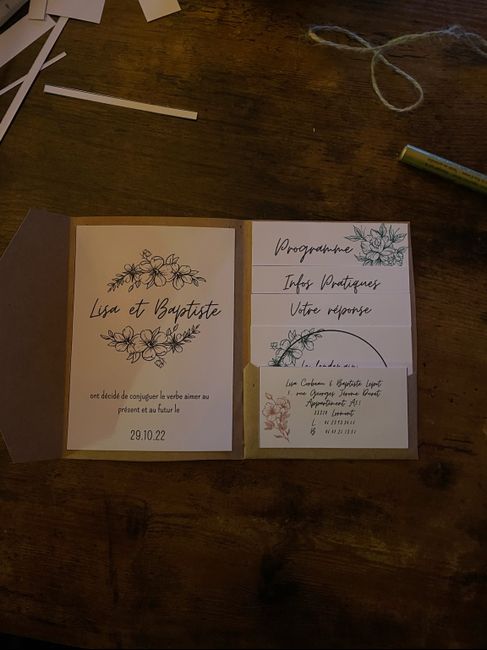 Lisa et Baptiste
ont décidé de conjuguer le verbe aimer au
présent et au futur le
29.10.22
Programme
Infos Pratiques
Votre réponse
Le lendemain
Lisa & Baptiste
rue Georges
Appartement
Lormont
L
B